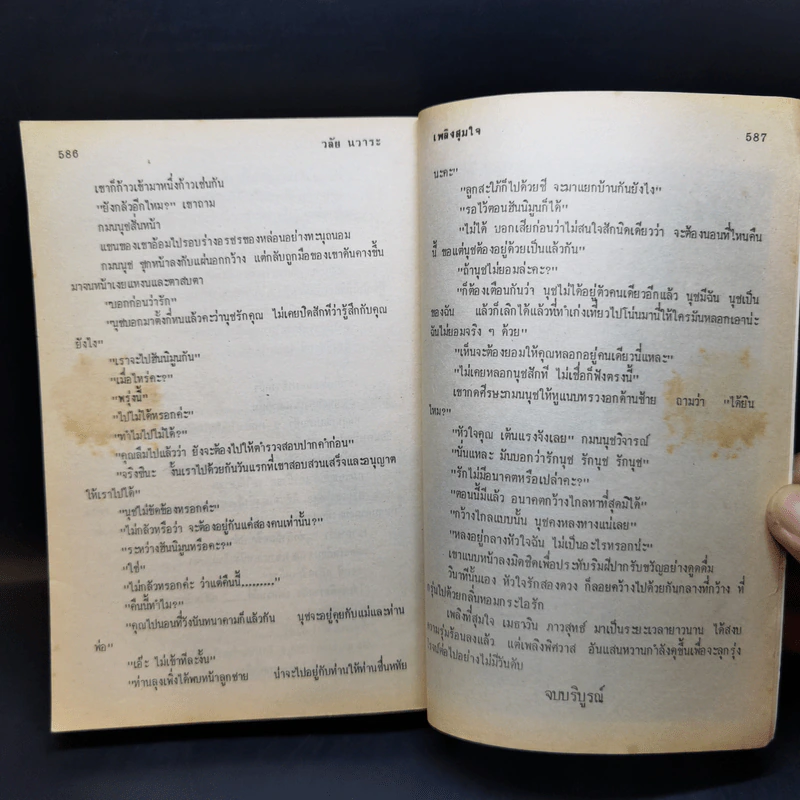 586
วลัย นวาระ
เขาก็ก้าวเข้ามาหนึ่งก้าวเช่นกัน
"ยังกลัวอีกไหม?" เขาถาม
กมนนุชสั่นหน้า
แขนของเขาอ้อมไปรอบร่างอรชรของหล่อนอย่างทะนุถนอม
กมนนุช ซุกหน้าลงกับแผ่นอกกว้าง แต่กลับถูกมือของเขาดันคางขึ้น
มาจนหน้าเงยแหงนและตาสบตา
"บอกก่อนว่ารัก"
"นุชบอกมาตั้งกี่หนแล้วคะว่านุชรักคุณ ไม่เคยปิดสักทีว่ารู้สึกกับคุณ
ยังไง"
"เราจะไปฮันนิมูนกัน"
"เมื่อไหร่คะ?"
"พรุ่งนี้"
"ไปไม่ได้หรอกค่ะ"
"ทำไมไปไม่ได้?"
"คุณลืมไปแล้วว่า ยังจะต้องไปให้ตำรวจสอบปากคำก่อน"
"จริงซินะ งั้นเราไปด้วยกันวันแรกที่เขาสอบสวนเสร็จและอนุญาต
ให้เราไปได้"
"นุชไม่ขัดข้องหรอกค่ะ"
"ไม่กลัวหรือว่า จะต้องอยู่กันแค่สองคนเท่านั้น?"
"ระหว่างฮันนิมูนหรือคะ?"
"ใช่"
"ไม่กลัวหรอกค่ะ ว่าแต่คืนนี้........."
"คืนนี้ทำไม?"
"คุณไปนอนที่วังนันทนาคามก็แล้วกัน นุชจะอยู่คุยกับแม่และท่าน
พ่อ"
"เอ๊ะ ไม่เข้าทีละงั้น"
"ท่านลุงเพิ่งได้พบหน้าลูกชาย น่าจะไปอยู่กับท่านให้ท่านชื่นหทัย
เพลิงสุมใจ
587
นะคะ"
"ลูกสะใภ้ก็ไปด้วยซี จะมาแยกบ้านกันยังไง"
"รอไว้ตอนฮันนิมูนก็ได้"
"ไม่ได้ บอกเสียก่อนว่าไม่สนใจสักนิดเดียวว่า จะต้องนอนที่ไหนคืน
นี้ ขอแต่นุชต้องอยู่ด้วยเป็นแล้วกัน"
"ถ้านุชไม่ยอมล่ะคะ?"
"ก็ต้องเตือนกันว่า นุชไม่ได้อยู่ตัวคนเดียวอีกแล้ว นุชมีฉัน นุชเป็น
ของฉัน แล้วก็เลิกได้แล้วที่ทำเก่งเที่ยวไปโน่นมานี่ให้ใครมันหลอกเอาน่ะ
ฉันไม่ยอมจริง ๆ ด้วย"
"เห็นจะต้องยอมให้คุณหลอกอยู่คนเดียวนี่แหละ"
"ไม่เคยหลอกนุชสักที ไม่เชื่อก็ฟังตรงนี้"
เขากดศีรษะกมนนุชให้หูแนบทรวงอกด้านซ้าย ถามว่า "ได้ยิน
ไหม?"
"หัวใจคุณ เต้นแรงจังเลย" กมนนุชวิจารณ์
"นั่นแหละ มันบอกว่ารักนุช รักนุช รักนุช"
"รักไม่มีอนาคตหรือเปล่าคะ?"
"ตอนนี้มีแล้ว อนาคตกว้างไกลหาที่สุดมิได้"
"กว้างไกลแบบนั้น นุชคงหลงทางแน่เลย"
"หลงอยู่กลางหัวใจฉัน ไม่เป็นอะไรหรอกน่ะ"
เขาแนบหน้าลงมิดชิดเพื่อประทับริมฝีปากรับขวัญอย่างดูดดื่ม
วินาทีนั้นเอง หัวใจรักสองดวง ก็ลอยคว้างไปด้วยกันกลางที่กว้าง ที่
กรุ่นไปด้วยกลิ่นหอมกระไอรัก
เพลิงที่สุมใจ เมธาวิน ภาวสุทธ์ มาเป็นระยะเวลายาวนาน ได้สงบ
ความรุ่มร้อนลงแล้ว แต่เพลิงพิศวาส อันแสนหวานกำลังคุขึ้นเพื่อจะลุกรุ่ง
ต่อไปอย่างไม่มีวันดับ
จบบริบูรณ์